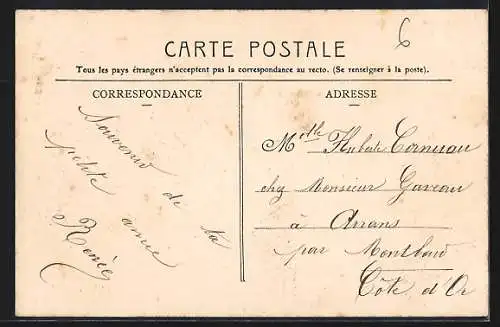 6
CARTE POSTALE
Tous les pays étrangers n'acceptent pas la correspondance au recto. (Se renseigner à la poste).
CORRESPONDANCE
Souvenir de ta
petite amie
Renée
ADRESSE
Melle Huberte Cornuau
chez Monsieur Gaveau
à Arrans
par Montbard
Côte d'Or